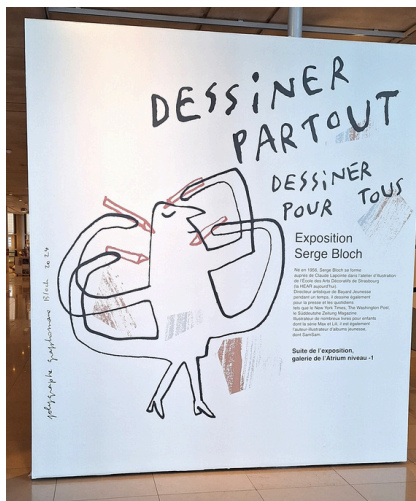 DESSINER
PARTOUT
DESSINER
POUR TOUS
Exposition
Serge Bloch
Né en 1956, Serge Bloch se forme
auprès de Claude Lapointe dans l'atelier d'illustration
de l'École des Arts Décoratifs de Strasbourg
(la HEAR aujourd'hui).
Directeur artistique de Bayard Jeunesse
pendant un temps, il dessine également
pour la presse et les quotidiens
tels que le New York Times, The Washington Post,
le Süddeutsche Zeitung Magazine
Illustrateur de nombreux livres pour enfants
dont la série Max et Lili, il est également
l'auteur illustrateur d'albums jeunesse,
dont SamSam.
Suite de l'exposition,
galerie de l'Atrium niveau -1
polygraphe graphomane Bloch 2024